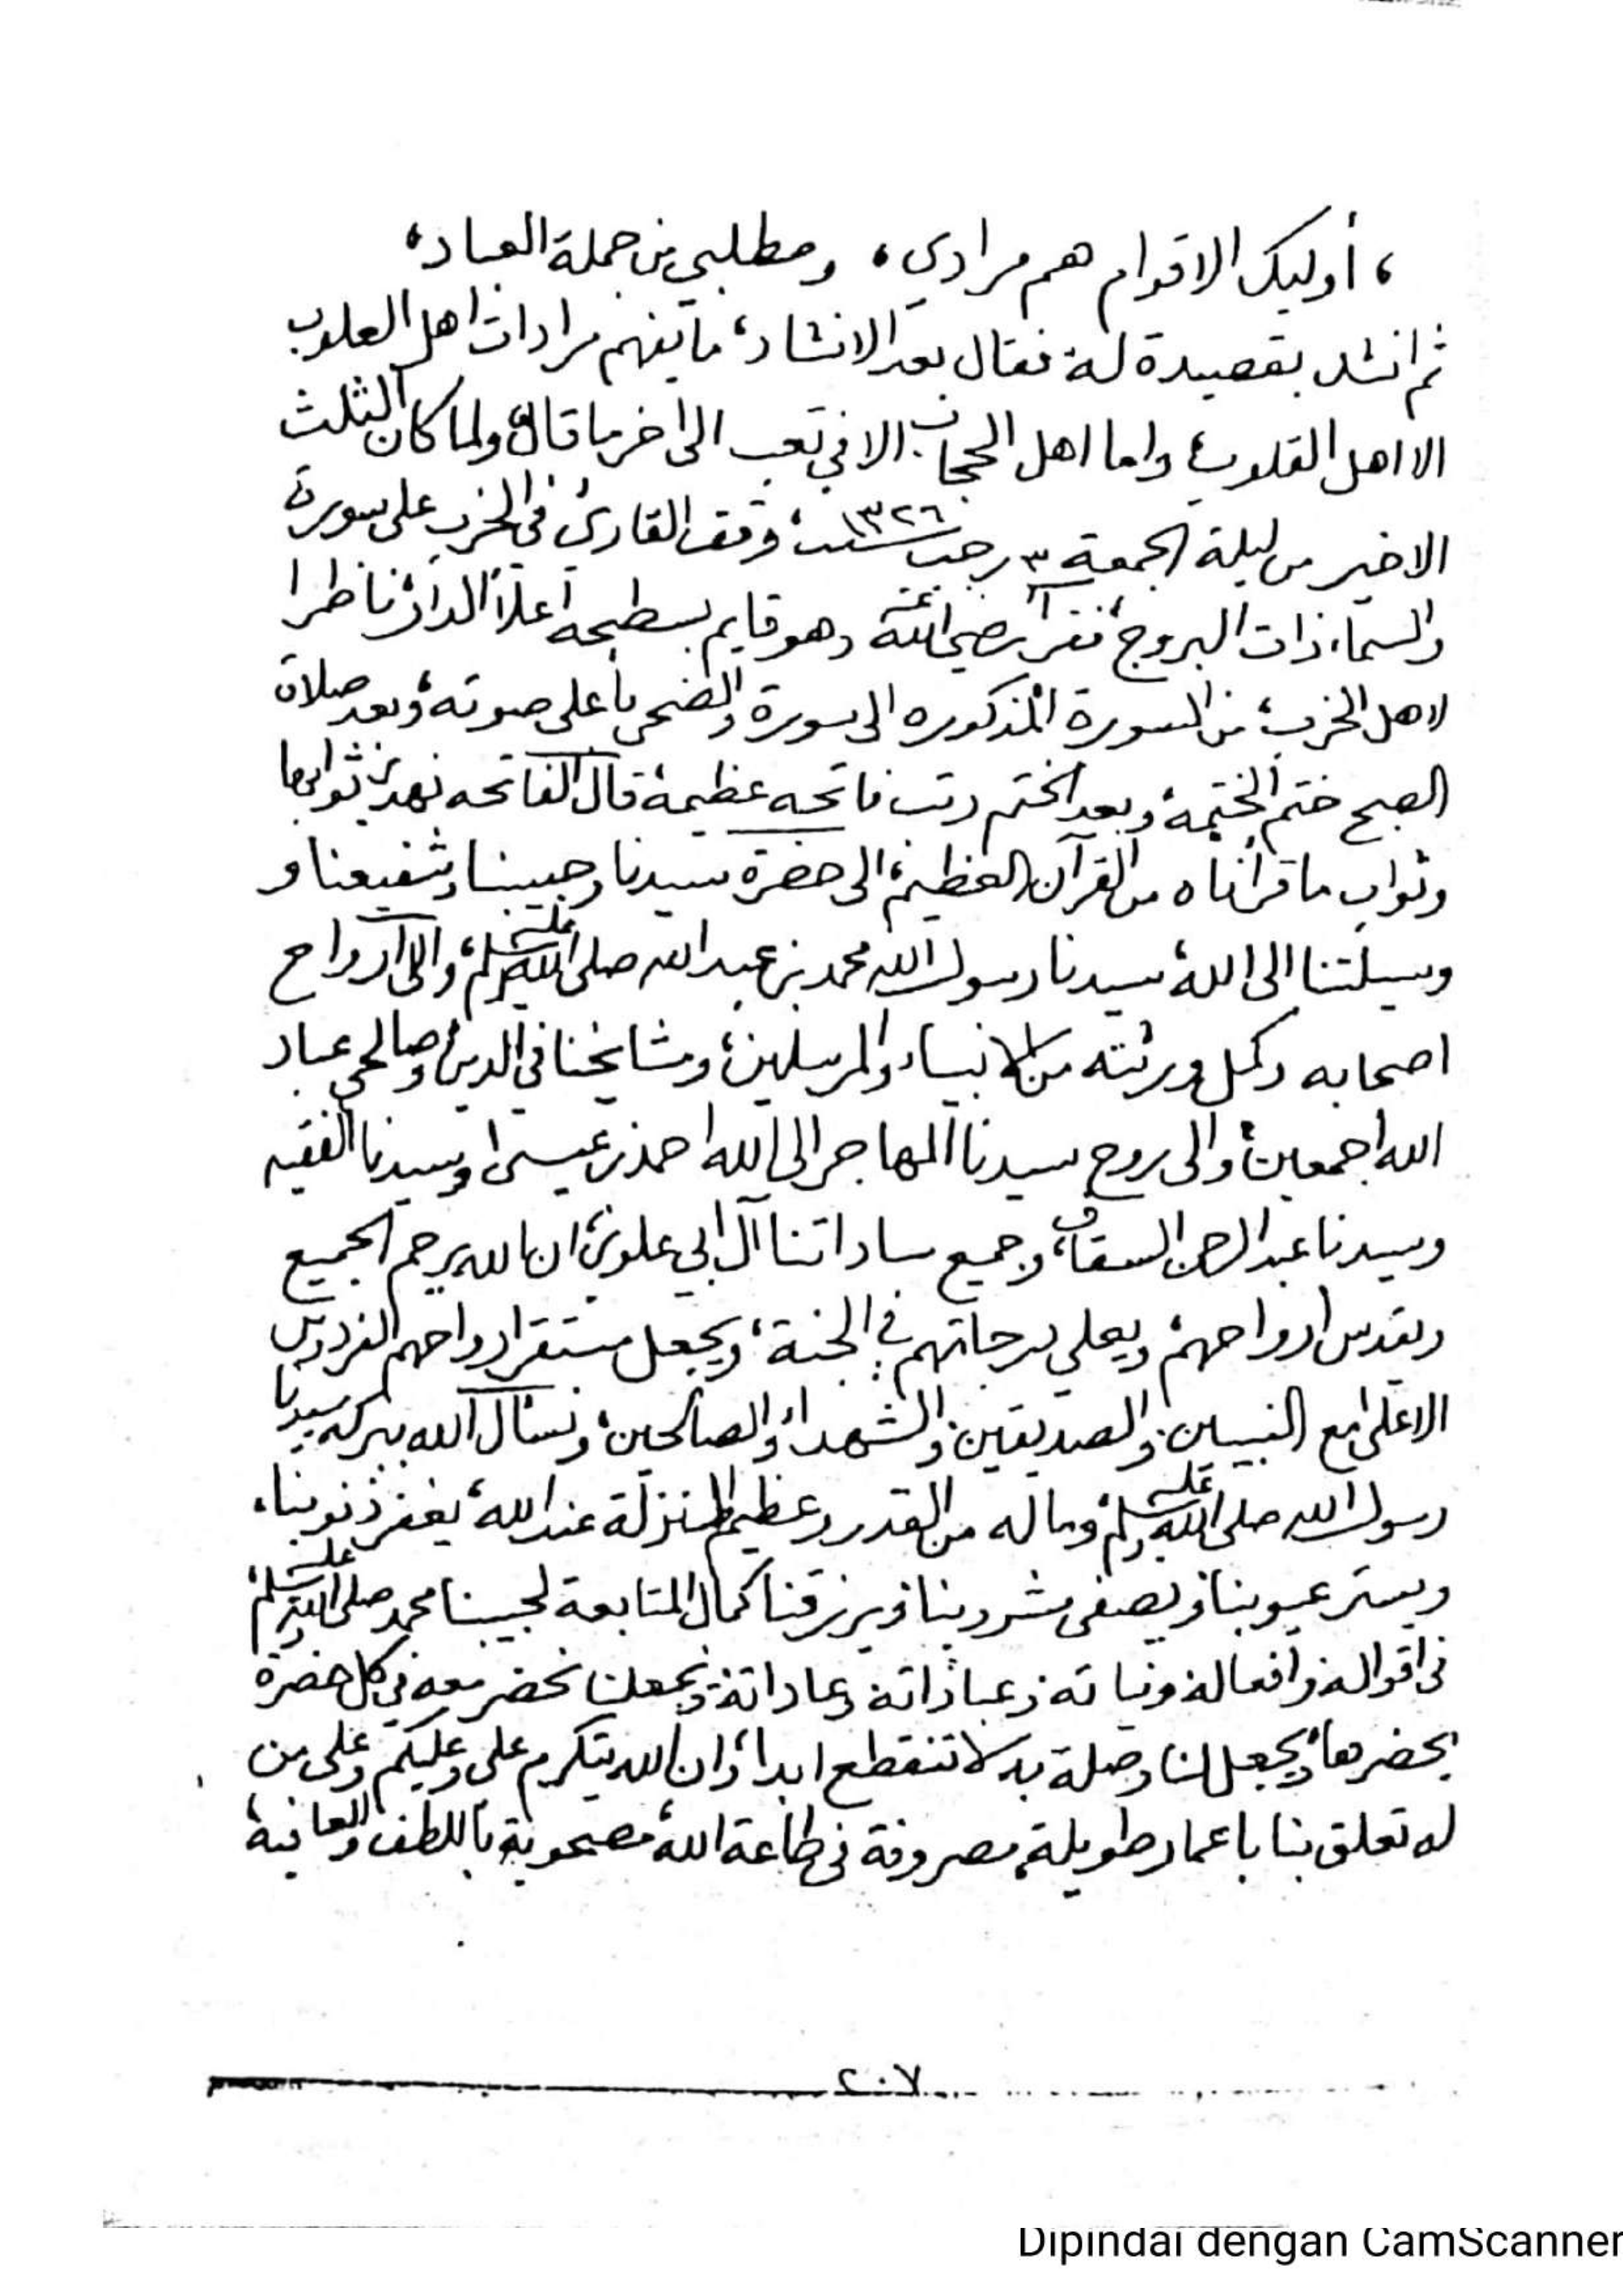 ، أوليك الاقوام هم مرادي ، ومطلبي من جملة العباد ،
ثم انشد بقصيدة له فقال بعد الانشاد ، ما يفهم مرادات اهل القلوب
الا اهل القلوب ، واما اهل الحجاب الا في تعب الى اخر ما قال ، ولما كان الثلث
الاخير من ليلة الجمعة ٣ رجب سنة ١٣٢٦ ، وقف القارئ في الحزب على سورة
والسماء ذات البروج ، فقرأ رضي الله عنه وهو قايم بسطيحه أعلا الدار ناظرا
لاهل الحزب ، من السورة المذكوره الى سورة والضحى باعلى صوته ، وبعد صلاة
الصبح ختم الختيمة ، وبعد الختم رتب فاتحه عظيمة قال الفاتحه نهدي ثوابها
وثواب ما قرأناه من القرآن العظيم ، الى حضرة سيدنا وحبيبنا وشفيعنا و
وسيلتنا الى الله ، سيدنا رسول الله محمد بن عبد الله صلى الله عليه وسلم ، والى أرواح
اصحابه وكمل ورثته من الانبياء والمرسلين ، ومشايخنا في الدين وصالحي عباد
الله اجمعين ، والى روح سيدنا المهاجر الى الله احمد بن عيسى ، وسيدنا الفقيه
وسيدنا عبد الرحمن السقاف ، وجميع ساداتنا آل ابي علوي ، ان الله يرحم الجميع
ويقدس ارواحهم ، ويعلي درجاتهم في الجنة ، ويجعل مستقر ارواحهم الفردوس
الاعلى مع النبيين والصديقين والشهداء والصالحين ، ونسأل الله ببركه سيدنا
رسول الله صلى الله عليه وسلم ، وماله من القدر وعظيم المنزلة عند الله ، يغفر ذنوبنا ،
ويستر عيوبنا ، ويصفى مشروبنا ، ويرزقنا كمال المتابعة لحبيبنا محمد صلى الله عليه وسلم
في اقواله وافعاله ونياته وعباداته وعاداته ، ويجعلنا نحضر معه في كل حضرة
يحضرها ، ويجعل لنا وصلة به لا تنقطع ابدا ، وان الله يتكرم علي وعليكم وعلى من
له تعلق بنا باعمار طويلة ، مصروفة في طاعة الله ، مصحوبة باللطف والعافية ،
٢٠٧
Dipindai dengan CamScanner